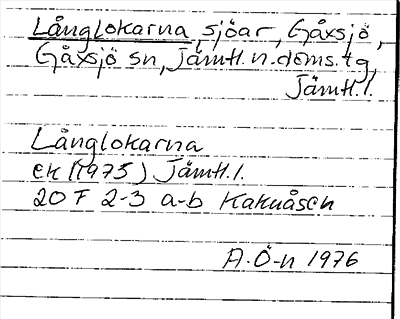 Långlokarna, sjöar, Gåxsjö,
Gåxsjö sn, Jämtl. n. doms. tg,
Jämtl. l.
Långlokarna
ek (1975) Jämtl. l.
20 F 2-3 a-b Kaknåsen
A. Ö-n 1976